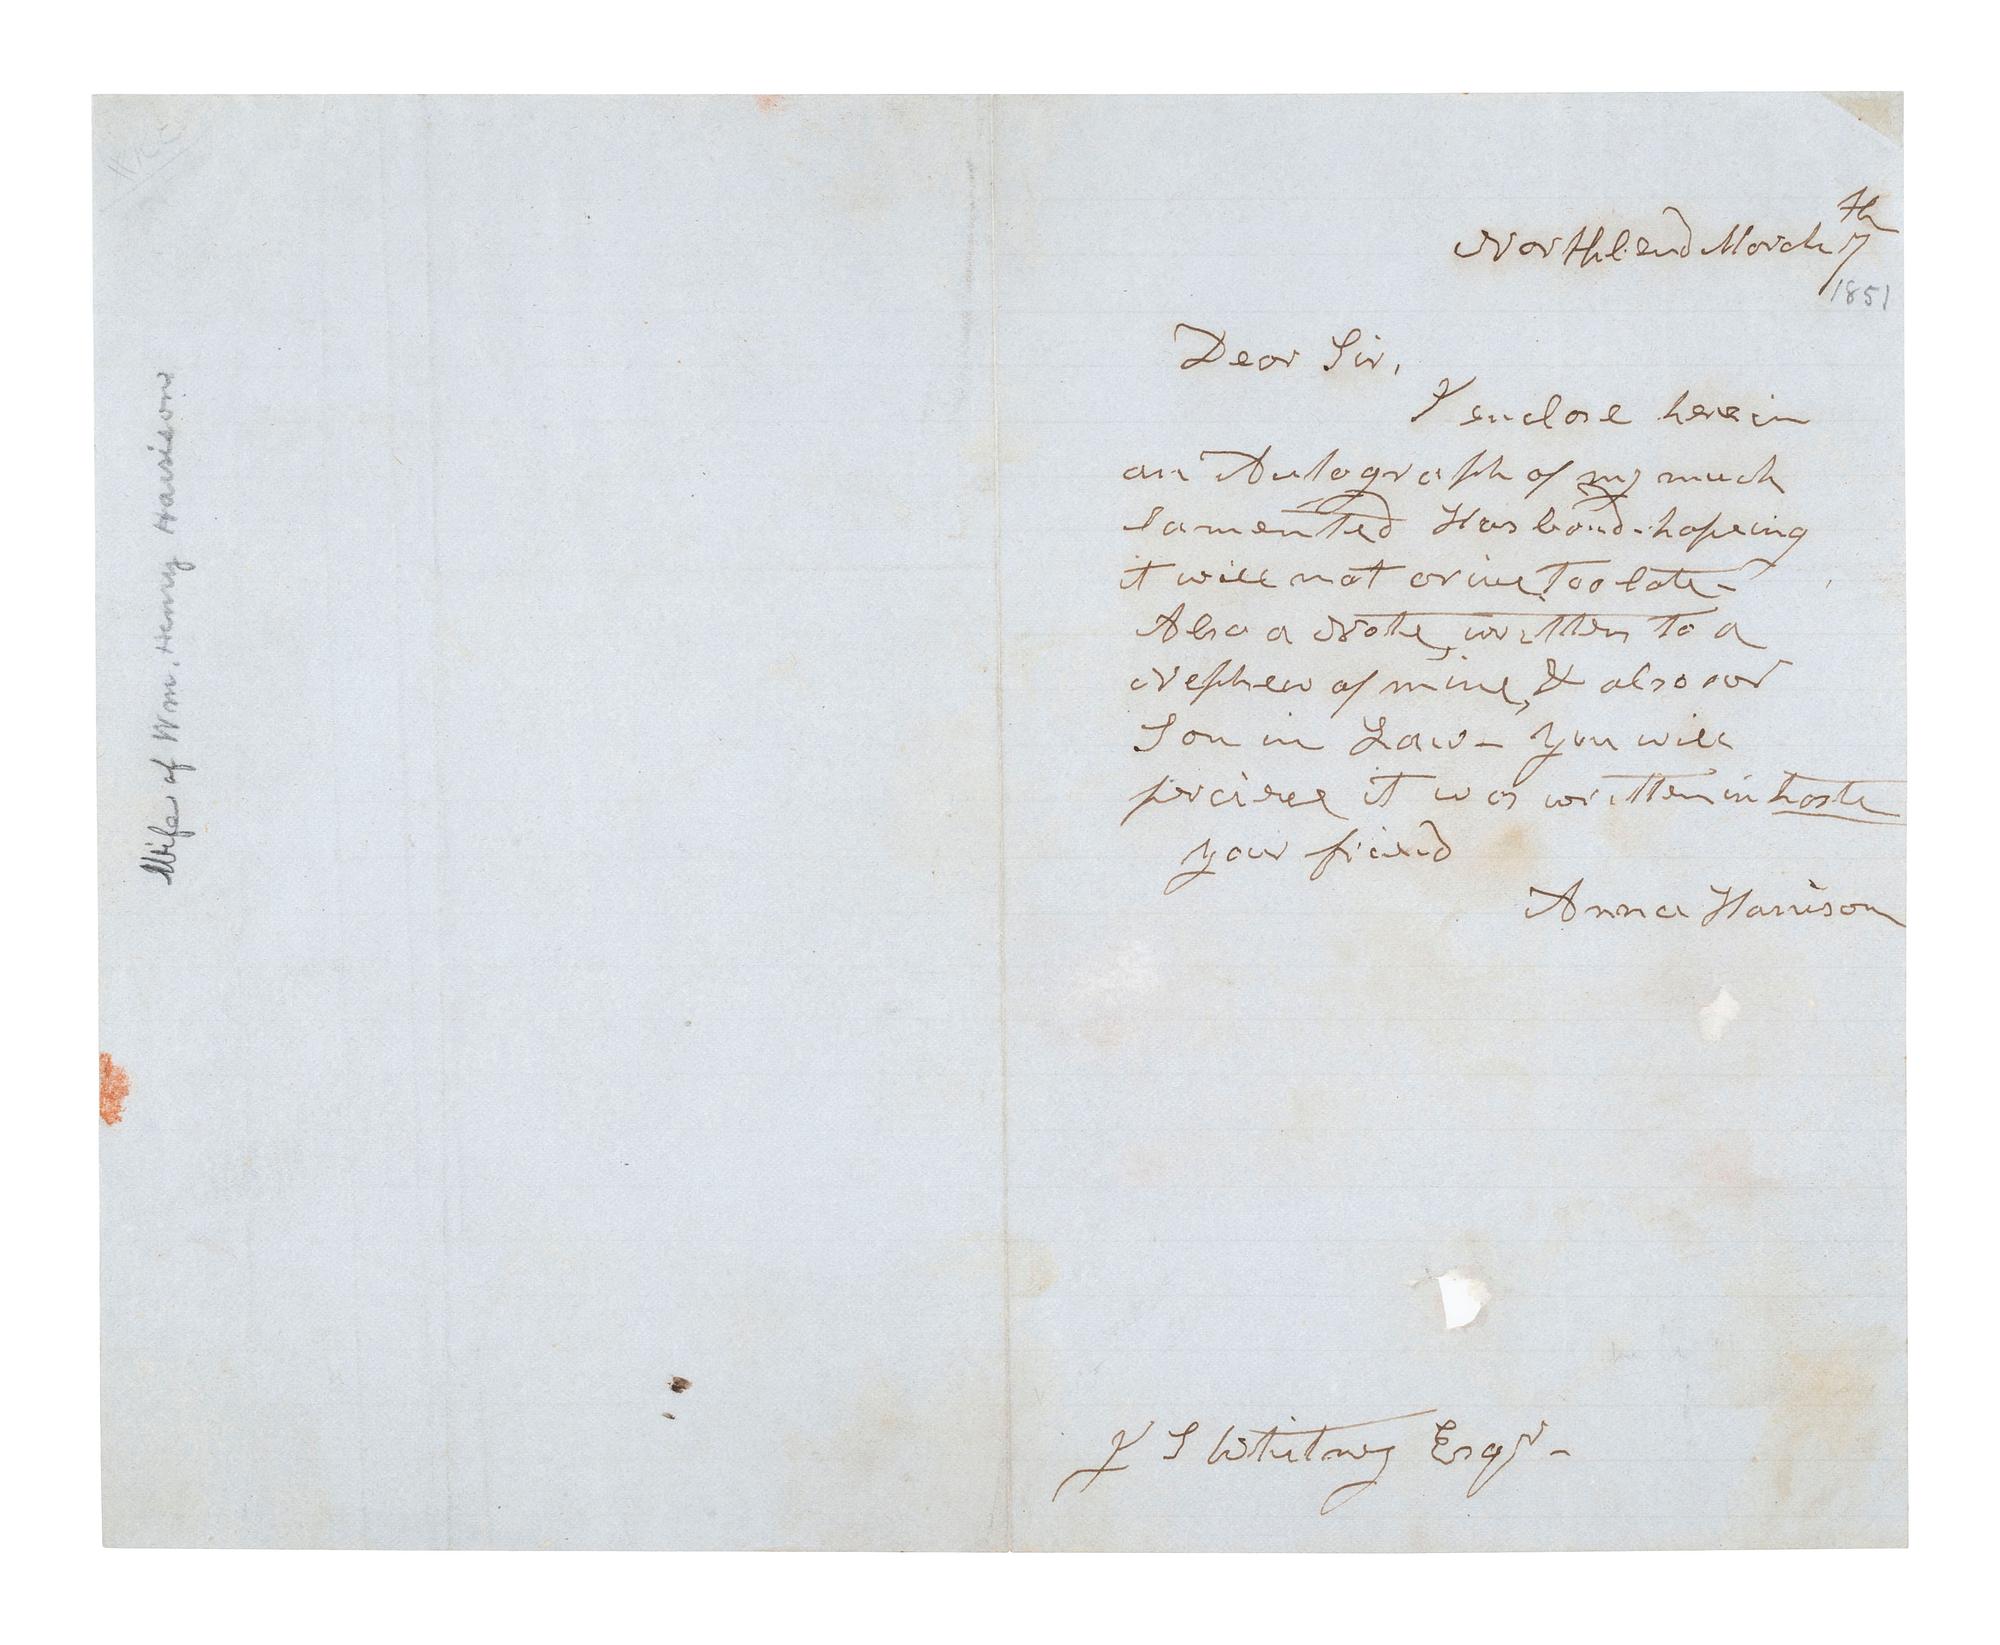 Wife of Wm. Henry Harrison
Northbend March 7th
1851
Dear Sir,
I enclose herein
an Autograph of my much
lamented Husband - hopeing
it will not arive too late -
Also a Note written to a
Nephew of mine, & also our
Son in Law - you will
percieve it was written in haste
your friend
Anna Harrison
J S Whitney Esqr -